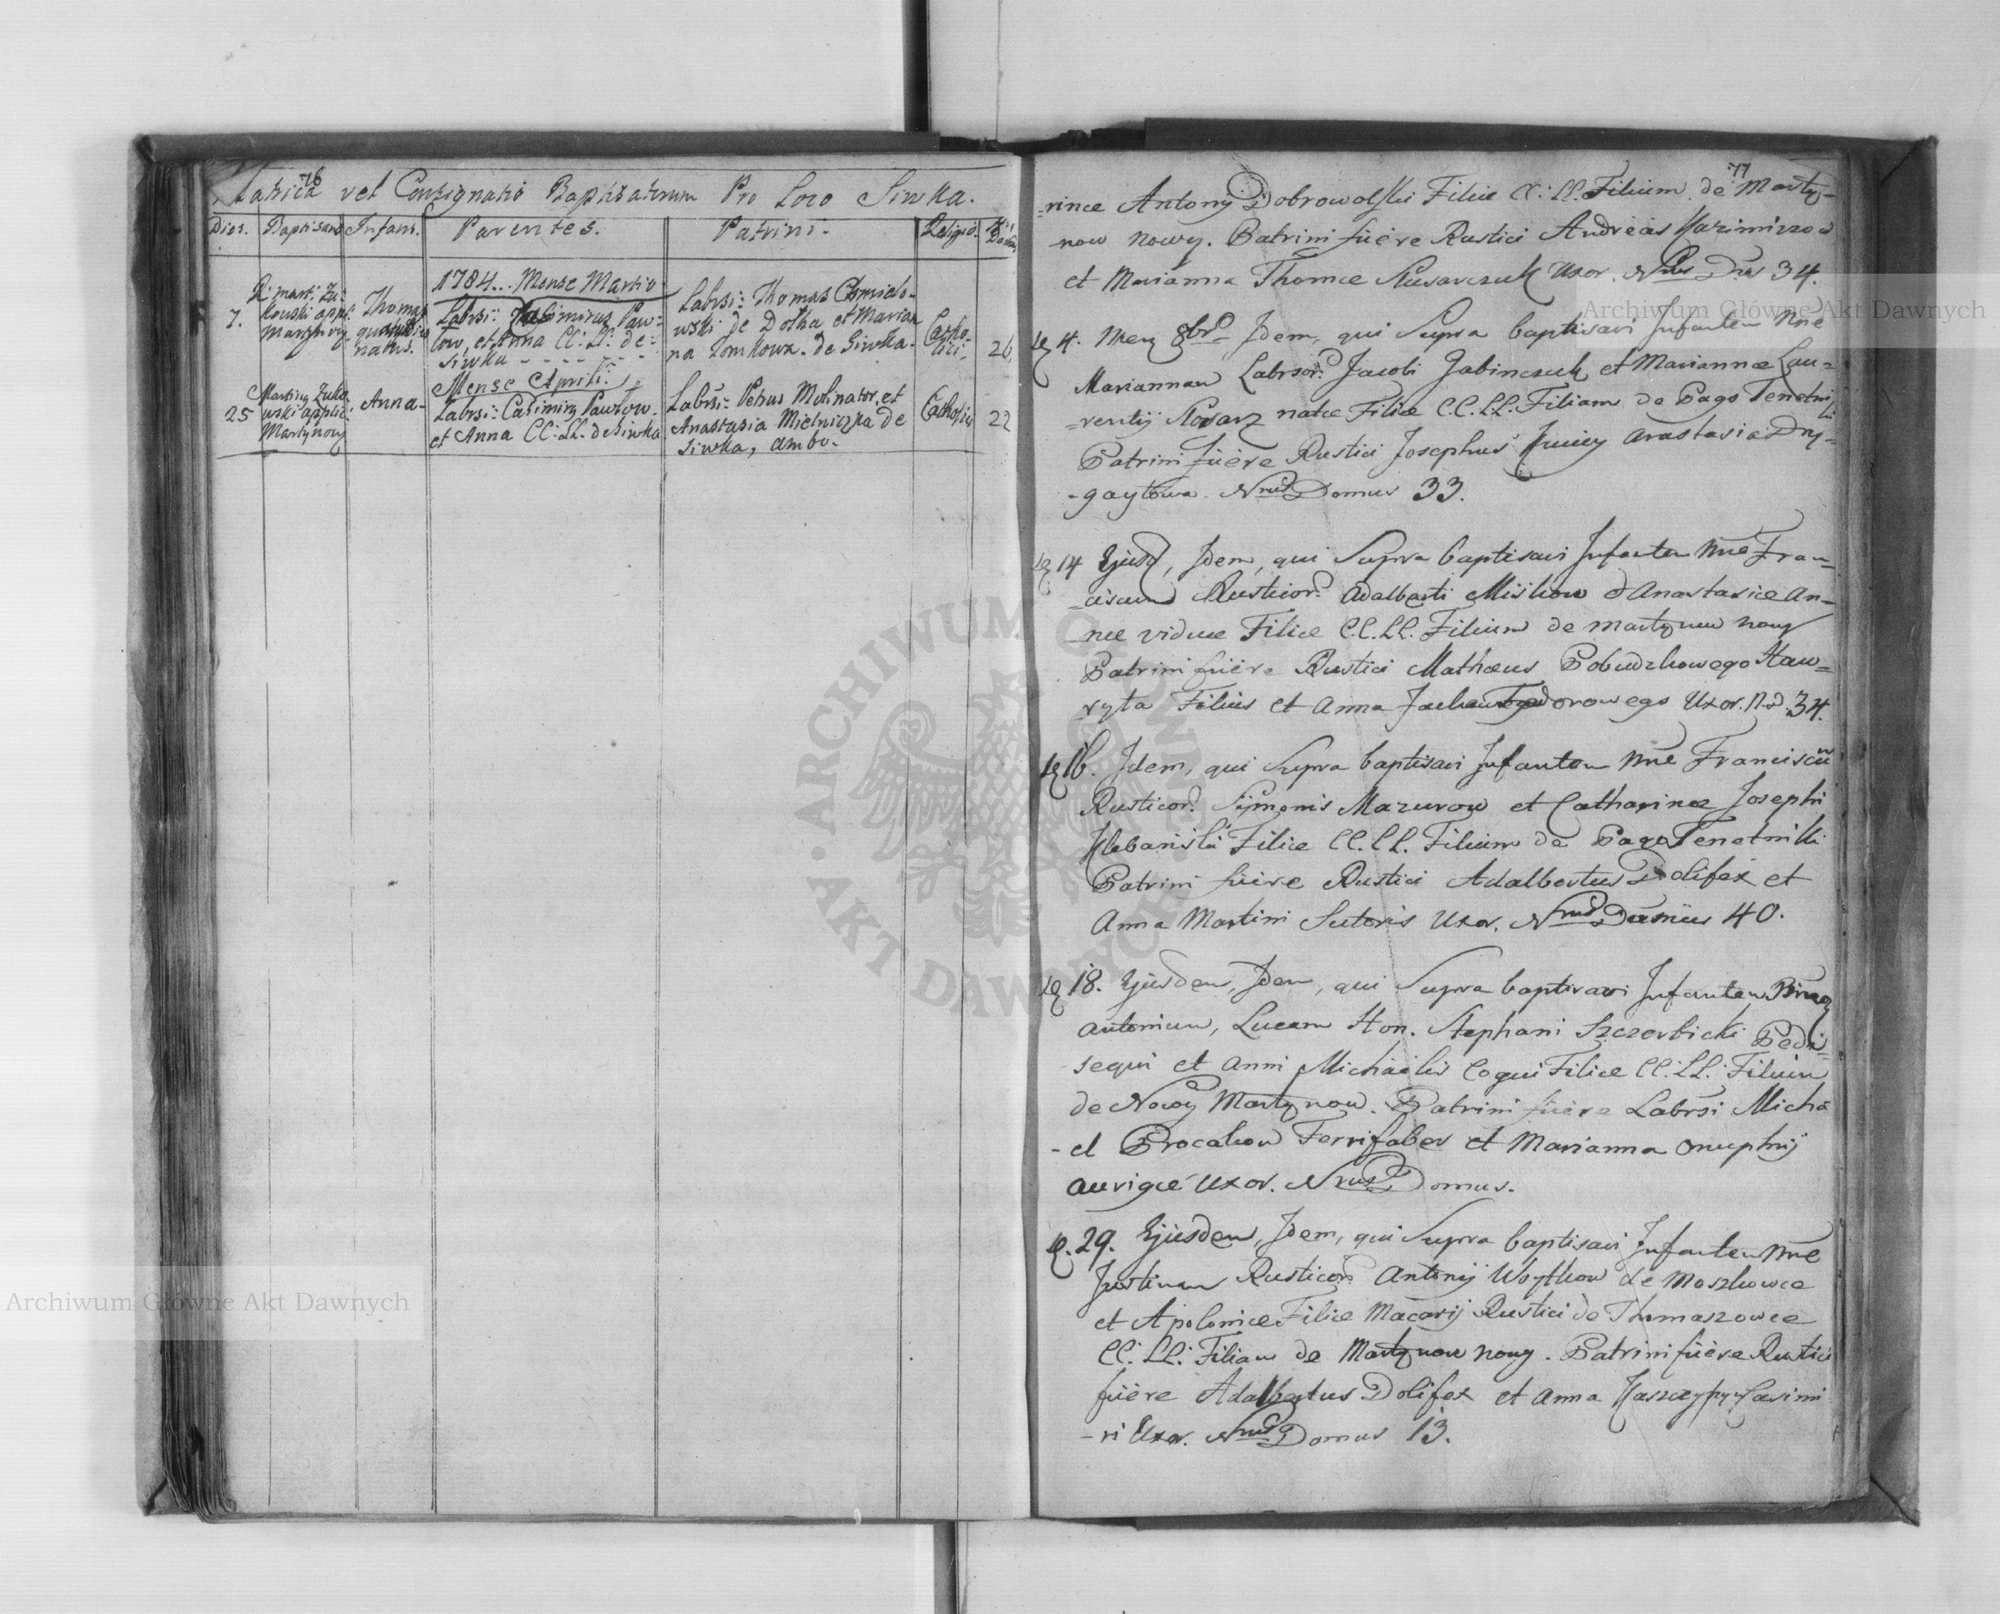 76
Matrica vel Consignatio Baptisatorum Pro Loco Siwka.
Dies. Baptisans Infans. Parentes. Patrini. Religio. Nrus Domus
1784... Mense Martio
7.
R: mart: Zukowski appl: Martynov
Thomas natus.
Labrsi: Casimirus Paw=
tow, et Anna CC: LL: de
Siwka
Labrsi: Thomas Chmielo-
wski de Dołha et Marian
na Tomkowa. de Siwka.
Catho-
lici
26
Mense Aprili
25
Martiny Zuko
wski applic.
Martynov
Anna
Labrsi: Casimiry Pawtow
et Anna CC: LL. de Siwka
Labrsi: Petrus Molinator, et
Anastasia Mielniczka de
Siwka, ambo.
Catholici
22
77
-rince Antonij Dobrowolski Filice CC: LL. Filium de Marty-
now nowy. Patrini fuere Rustici Andreas Kazimirzow
et Marianna Thomce Slusarczuk Uxor. Nrus Dus 34.
4. Men 8br Idem, qui Supra baptisavi Infantem Nne
Mariannam Labrsor. Jacobi Gabinczuk et Mariannce Lau-
-rentij Stolarz natce Filice C.C.LL. Filiam de Pago Tenetniki
Patrini fuere Rustici Josephus Juney Anastasia Dry-
-gaytowa. Nrus Domus 33.
14 Ejusd, Idem, qui Supra baptisavi Infantem Nne Fran-
-ciscum Rusticor. Adalberti Miskow & Anastasice An-
nce viduce Filice C.C.LL. Filium de Martynow nowy
Patrini fuere Rustici Mathceus Pobudzkowego Haw-
ryta Filius et Anna Fedorowego Uxor. N.d. 34.
16. Idem, qui Supra baptisavi Infantem Nne Franciscum
Rusticor. Symonis Mazurow et Catharince Josephi
Klebanski Filice CC.LL. Filium de Pago Tenetniki
Patrini fuere Rustici Adalbertus Dolifex et
Anna Martini Sutoris Uxor. Nrus Domus 40.
18. Ejusdem, Idem, qui Supra baptisavi Infantem Binog
Antonium, Lucam Hon. Stephani Szczerbicki Pedi-
sequi et Anni Michaelis Coqui Filice CC: LL: Filium
de Nowy Martynow. Patrini fuere Labrsi Micha
-el Procakow Ferrifaber et Marianna Onuphrij
aurigce Uxor. Nrus Domus.
29. Ejusdem, Idem, qui Supra baptisavi Infantem Nne
Justinam Rusticor Antonij Woytkow de Moszkowce
et Apolonice Filice Macarij Rustici de Thomaszowce
CC: LL: Filiam de Martynow nowy. Patrini fuere Rustici
fuere Adalbertus Dolifex et Anna Casimi
-ri Uxor. Nrus Domus 13.
Archiwum Główne Akt Dawnych
Archiwum Główne Akt Dawnych
ARCHIWUM GŁÓWNE · AKT DAWNYCH ·